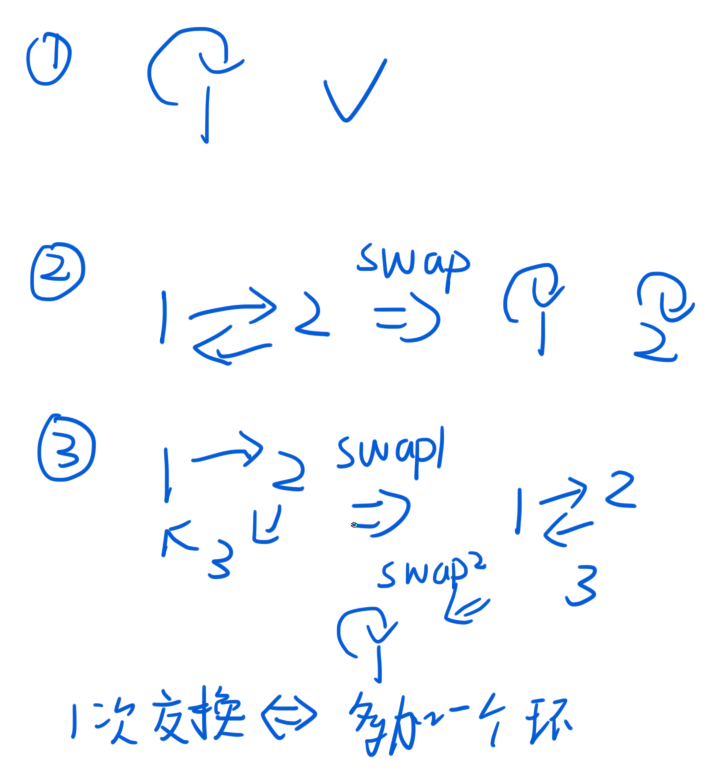 ① 1 √
② 1 ⇄ 2 swap ⇒ 1 2
③ 1 → 2 swap1 ⇒ 1 ⇄ 2
3 3
swap2
1
1次交换 ⇔ 多加一个环